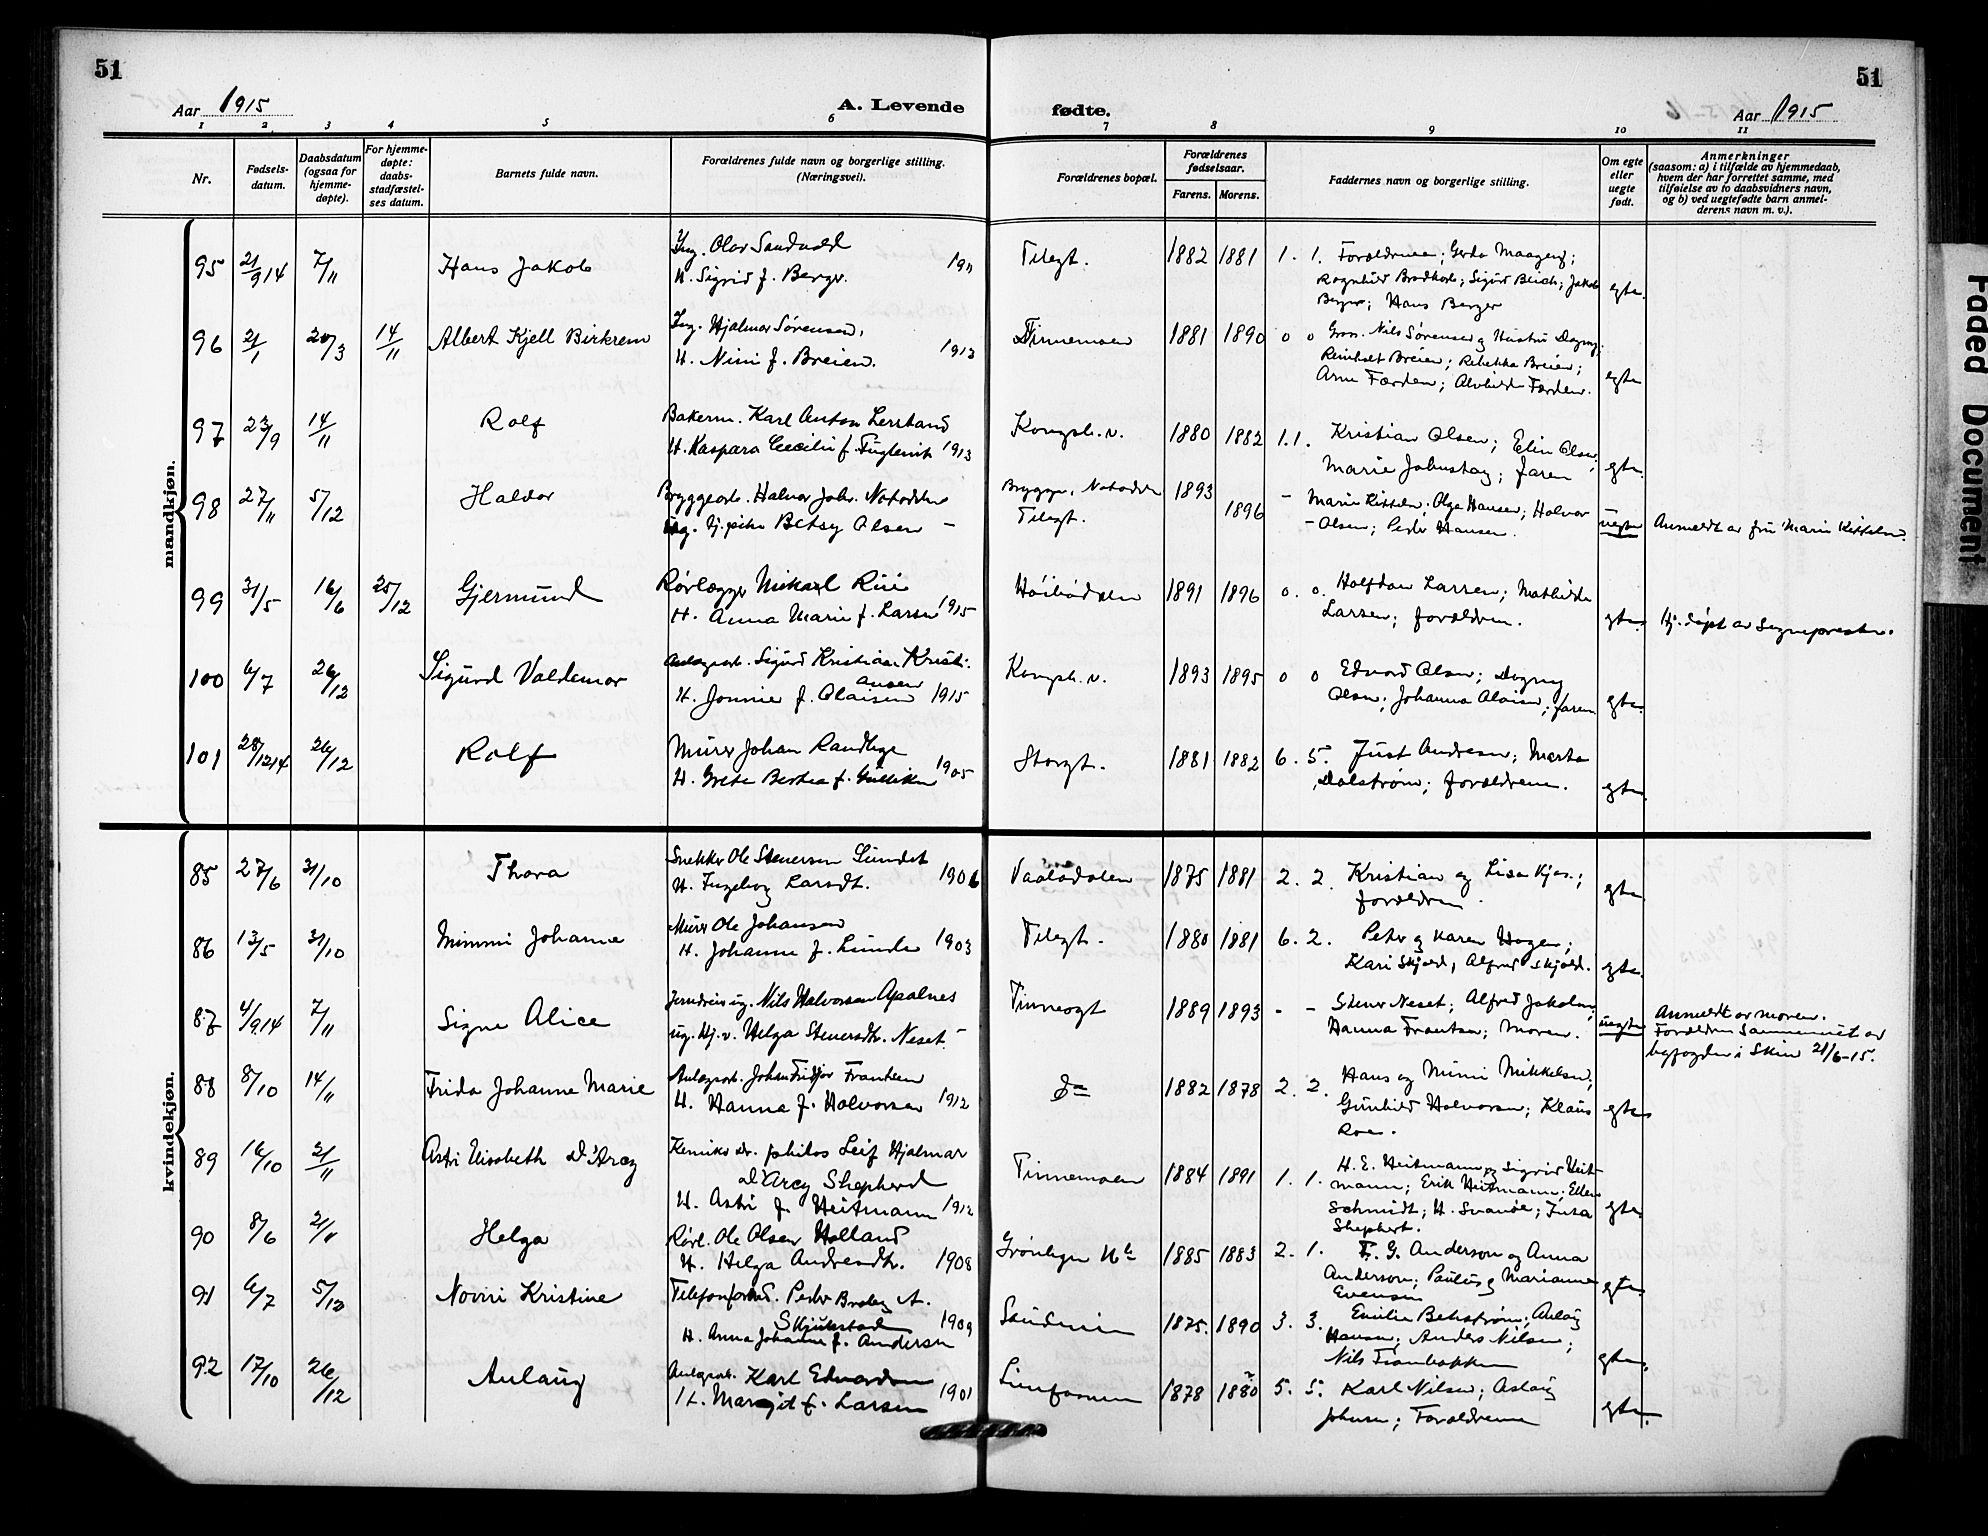 51
51
Aar 1915
A. Levende
fødte.
Aar 1915
1 2 3 4 5 6 7 8 9 10 11
Nr.
Fødsels-
datum.
Daabsdatum
(ogsaa for
hjemme-
døpte).
For hjemme-
døpte:
daabs-
stadfæstel-
ses datum.
Barnets fulde navn.
Forældrenes fulde navn og borgerlige stilling.
(Næringsvei).
Forældrenes bopæl.
Forældrenes
fødselsaar.
Farens. Morens.
Faddernes navn og borgerlige stilling.
Om egte
eller
uegte
født.
Anmerkninger
(saasom: a) i tilfælde av hjemmedaab,
hvem der har forrettet samme, med
tilføielse av to daabsvidners navn,
og b) ved uegtefødte barn anmel-
derens navn m. v.).
mandkjøn.
95 21/9 14 7/11 Hans Jakob
Ing. Olav Sandvold
H. Sigrid f. Berger. 1911
Telegt. 1882 1881 1. 1.
Forældrene; Gerda
Ragnhild ; Sigurd ; Jakob
Berger; Hans Berger
egte.
96 21/1 20/3 14/11 Albert Kjell Birkrem
Ing. Hjalmar Sørensen,
H. Nini f. Breien. 1913
Tinnemoen 1881 1890 0 0
Gross. Nils Sørensen og Hustru Dagny;
Reinholt Breien; Rebekka Breien;
Arne Færden; Alvhilde Færden.
egte
97 23/9 14/11 Rolf
Bakerm. Karl Anton Lerstand
H. Kaspara Cecilie f. Fuglevik 1913
Kongsb. v. 1880 1882 1. 1.
Kristian Olsen; Elin Olsen;
Marie ; faren
egte.
98 27/11 5/12 Haldor
Bryggearb. Halvor Joh. Notodden
ug. tj.pike Betsy Olsen —
Brygge, Notodden
Telegt. 1893 1896 –
Marie Kittelsen; Olga Hansen; Halvor
– Olsen; Peder Hansen.
uegte
Anmeldt av fru Marie Kittelsen.
99 31/5 16/6 25/12 Gjermund
Rørlægger Mikael Rui
H. Anna Marie f. Larsen 1915
1891 1896 0. 0.
Halfdan Larsen; Mathilde
Larsen; forældrene.
egte.
Hj. døpt av Sogneprester.
100 6/7 26/12 Sigurd Valdemar
Anlægsarb. Sigurd Kristian Kristi-
ansen
H. Jonnie f. Olaisen 1915
Kongsb. v. 1893 1895 0 0
Edvard Olsen; Dagny
Olsen; Johanna Olaisen; faren
egte.
101 28/12 14 26/12 Rolf
Murer Johan Randhge
H. Grete Bertea f. Gulliksen 1905
Storgt. 1881 1882 6. 5.
Just Andresen; Marta
Dalstrøm; forældrene.
egte.
kvindekjøn.
85 27/6 31/10 Thora
Snekker Ole Stenersen Sundet
H. Ingeborg Larsdt. 1906
Vaalådalen 1875 1881 2. 2.
Kristian og Lisa Kjos.;
forældrene.
egte
86 13/5 31/10 Mimmi Johanne
Murer Ole Johansen
H. Johanne f. Lunde 1903
Telegt. 1880 1881 6. 2.
Peter og Karen Hagen;
Kari Skjold, Alfred Skjold.
egte.
87 4/9 14 7/11 Signe Alice
Jerndreier ug. Nils Halvorsen Apalnes
ug. Hj. v. Helga Stenersdtr. Neset. –
Tinnesgt 1889 1893 – –
Stener Neset; Alfred Jakobsen;
Hanna Frantsen; moren.
uegte
Anmeldt av moren.
Forældrene sammenviet av
byfogden i Skien 21/6-15.
88 8/10 14/11 Frida Johanne Marie
Anlægsarb. Johan Fridtjov Frantsen
H. Hanna f. Halvorsen 1912
do 1882 1878 2. 2.
Hans og Mimi Mikkelsen;
Gunhild Halvorsen; Klaus
Roe.
egte
89 16/10 21/11 Astri Elisabeth d'Arcy
Kemiker dr. philos Leif Hjalmar
d'Arcy Shepherd
H. Astri f. Heitmann 1912
Tinnemoen 1884 1891 1. 1.
H. E. Heitmann og Sigrid Heit-
mann; Erik Heitmann; Ellen
Schmidt; H. Svanøe; Juta
Shephert.
egte.
90 8/6 21/11 Helga
Rørl. Ole Olsen Holland
H. Helga Andreasdtr. 1908
1885 1883 2. 1.
F. G. Anderson og Anna
Anderson; Paulus og Marianne
Evensen
egte.
91 6/7 5/12 Noviri Kristine
Telefonformd. Peder Braley A.
Skjukstad
H. Anna Johanne f. Andersen 1909
1875. 1890 3. 3.
Emilie Bekstrøm; Aslaug
Hansen; Anders Nilsen;
Nils Tranbakken
egte.
92 17/10 26/12 Aulaug
Anlægsarb. Karl Edvardsen
H. Margit f. Larsen 1901
1878 1880 5. 5.
Karl Nilsen; Aslaug
Johnsen; Forældrene
egte.
Faded Document